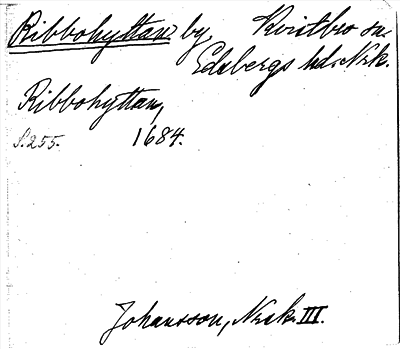 Ribbohyttan by Kvistbro sn.
Edsbergs hd. Nrk.
Ribbohyttan,
S. 255. 1684.
Johansson, Nrk. III.